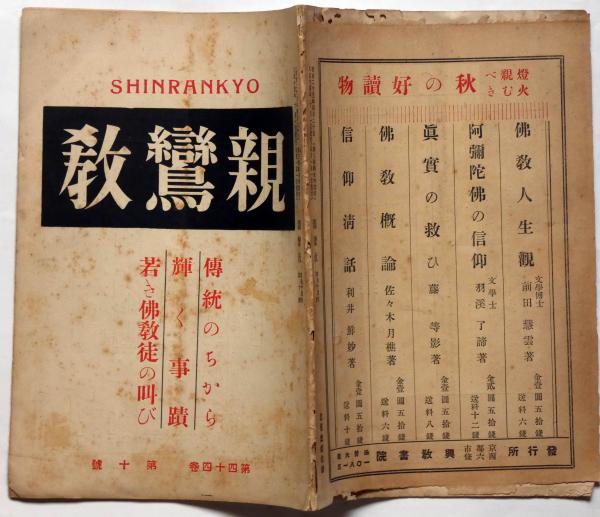 SHINRANKYO
親鸞教
傳統のちから
輝く事蹟
若き佛教徒の叫び
第四十四卷 第十號
燈火親むべき秋の好讀物
佛教人生觀 文學博士 前田慧雲著 金壹圓五拾錢 送料六錢
阿彌陀佛の信仰 文學士 羽溪了諦著 金貳圓五拾錢 送料十二錢
眞實の救ひ 藤等影著 金壹圓五拾錢 送料八錢
佛教概論 佐々木月樵著 金壹圓五拾錢 送料六錢
信仰淸話 利井鮮妙著 金壹圓五拾錢 送料十錢
發行所 京都市西六條 興教書院